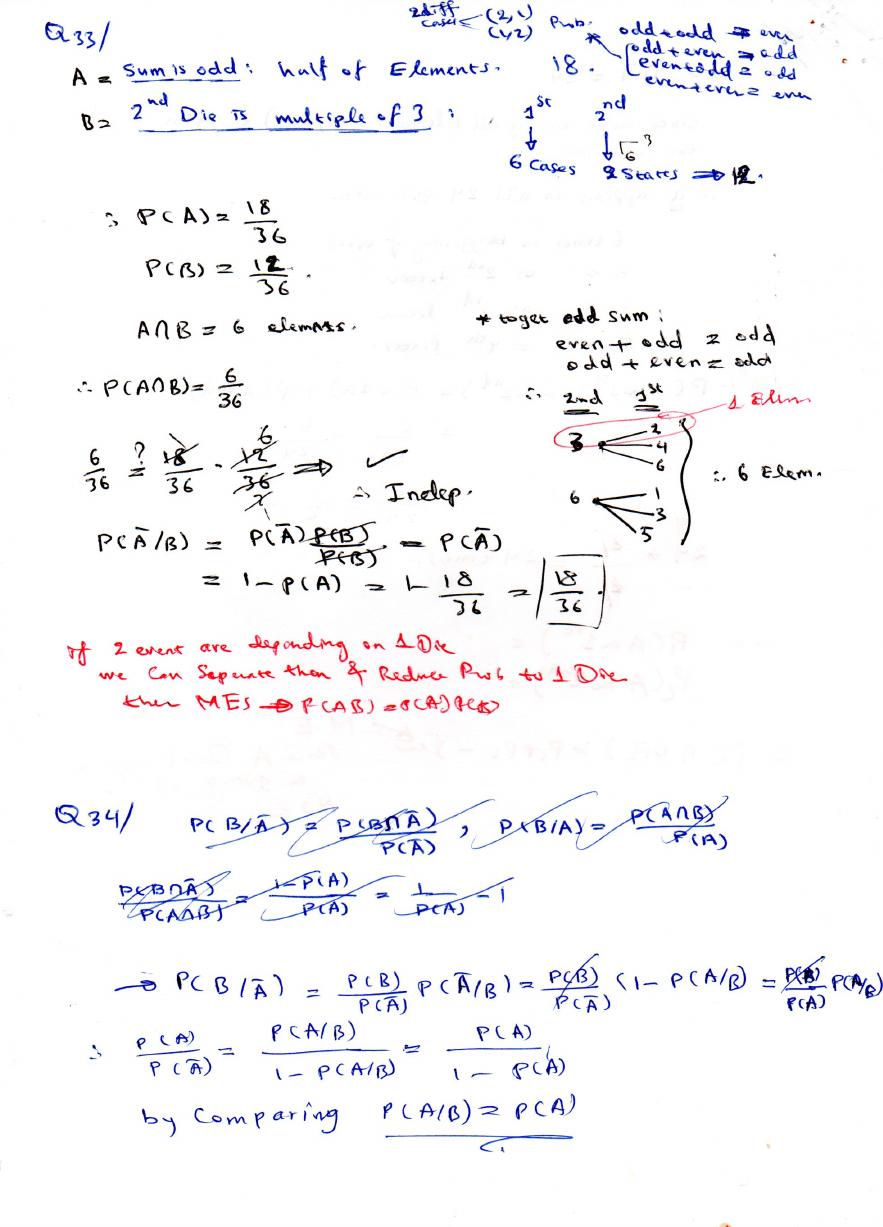 Q33/
2 diff cases (2,1) (1,2) Prob.
* odd + odd => even
odd + even => odd
even + odd = odd
even + even = even
A = Sum is odd : half of Elements. 18.
B = 2nd Die is multiple of 3 :
1st 2nd
↓ ↓ 3 6
6 Cases 2 States => 12.
∴ P(A) = 18/36
P(B) = 12/36.
A∩B = 6 elements.
∴ P(A∩B) = 6/36
* to get odd sum :
even + odd = odd
odd + even = odd
∴ 2nd 1st
1 Elem
3 2 4 6
6 1 3 5
∴ 6 Elem.
6/36 =? 18/36 . 12/36 => ✓
6
2
∴ Indep.
P(Ā/B) = P(Ā)P(B)/P(B) = P(Ā)
= 1 - P(A) = 1 - 18/36 = 18/36.
If 2 event are depending on 1 Die
we Can Separate them & Reduce Prob to 1 Die
then MES => P(AB) = P(A)P(B)
Q34/
P(B/Ā) = P(B∩Ā)/P(Ā) , P(B/A) = P(A∩B)/P(A)
P(B∩Ā)/P(A∩B) = 1-P(A)/P(A) = 1/P(A) - 1
→ P(B/Ā) = P(B)/P(Ā) P(Ā/B) = P(B)/P(Ā) (1 - P(A/B) = P(B)/P(A) P(A/B)
∴ P(A)/P(Ā) = P(A/B)/1 - P(A/B) = P(A)/1 - P(A)
by Comparing P(A/B) = P(A)